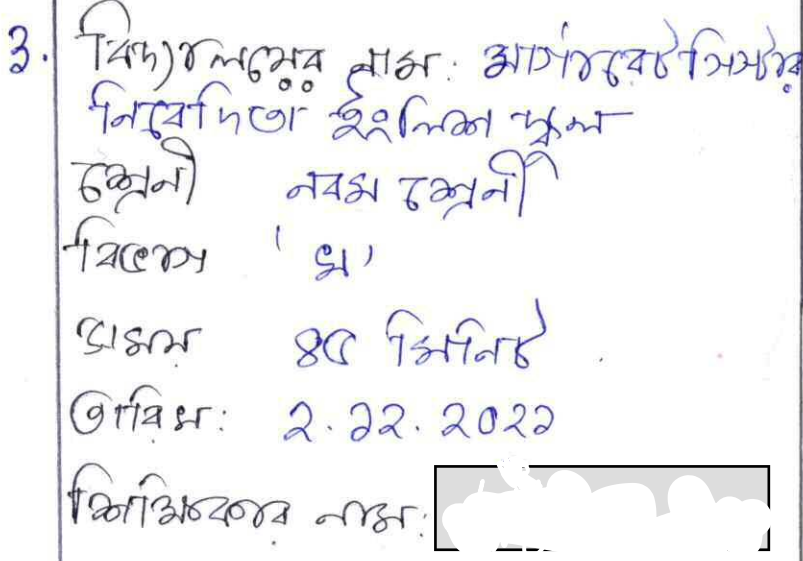 ৩. বিদ্যালয়ের নাম: মার্গারেট সিস্টার
নিবেদিতা ইংলিশ স্কুল
শ্রেনী নবম শ্রেনী
বিভাগ 'খ'
সময় ৪৫ মিনিট
তারিখ: ২.১২.২০২১
শিক্ষিকার নাম: